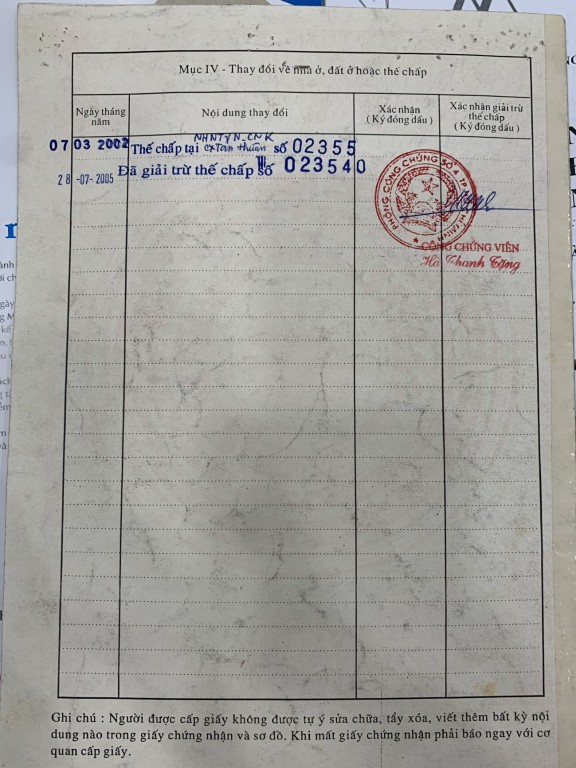 Mục IV - Thay đổi về nhà ở, đất ở hoặc thế chấp
Ngày tháng năm
Nội dung thay đổi
Xác nhận
( Ký đóng dấu )
Xác nhận giải trừ thế chấp
( Ký đóng dấu )
07 03 2002 Thế chấp tại số 02355
28 -07- 2005 Đã giải trừ thế chấp số 023540
PHÒNG CÔNG CHỨNG SỐ 4 TP
CÔNG CHỨNG VIÊN
Hà Thanh Tặng
Ghi chú : Người được cấp giấy không được tự ý sửa chữa, tẩy xóa, viết thêm bất kỳ nội
dung nào trong giấy chứng nhận và sơ đồ. Khi mất giấy chứng nhận phải báo ngay với cơ
quan cấp giấy.